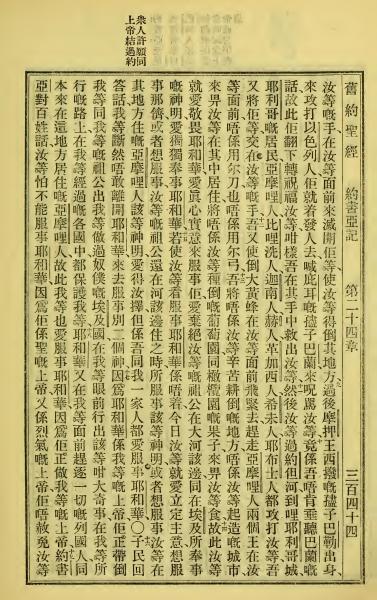 舊約聖經 約書亞記 第二十四章 三百四十四
汝等嘅手在汝等面前來滅開佢等使汝等得倒其地方過後摩押王西撥嘅儘子巴勒出身
來攻打以色列人佢就着發人去喊庇耳嘅儘子巴蘭來呪罵汝等竟係吾唔肯聽巴蘭嘅
話故此佢翻下轉祝福汝等咁樣吾在其手中救出汝等然後汝等過約但河到哩耶利哥城
耶利哥嘅居民亞摩哩人比哩洗人迦南人赫人革加西人希未人耶布士人都攻打汝等吾
又將佢等交在汝等嘅手吾又使倒大黃蜂在汝等面前飛緊去趕走亞摩哩人兩個王在汝
等面前唔係用尔刀也唔係用尔弓吾將唔係汝等辛苦耕倒嘅地方唔係汝等起造嘅城市
來畀汝等在其中居住將唔係汝等種倒嘅葡萄園同橄欖園嘅果子來畀汝等食故此汝等
就愛敬畏耶和華愛眞心實意來服事佢愛棄絕汝等嘅祖公在大河該邊同在埃及所奉事
嘅神明愛獨獨奉事耶和華若使汝等看服事耶和華係唔着今日汝等就愛立定主意想服
事那儕或者想服事汝等嘅祖公還在河該邊住之時所服事該等神明或者想服事汝等在
其地方住嘅亞摩哩人該等神明愛得汝擇但係吾同我一家人都愛服事耶和華○子民回
答話我等斷然唔敢離開耶和華來去服事別二個神因爲耶和華係我等嘅上帝佢正帶倒
我等同我等嘅祖公出我等做過奴僕嘅埃及國在我等眼前行出該等咁大奇事在我等所
行嘅路上在我等經過嘅各國中都保護我等耶和華又在我等面前趕逐一切嘅列國人同
本來在這地方居住嘅亞摩哩人故此我等也愛服事耶和華因爲佢正做我等嘅上帝約書
亞對百姓話汝等怕不能服事耶和華因爲佢係聖嘅上帝又係烈氣嘅上帝佢唔赦免汝等
衆人許願同
上帝結過約